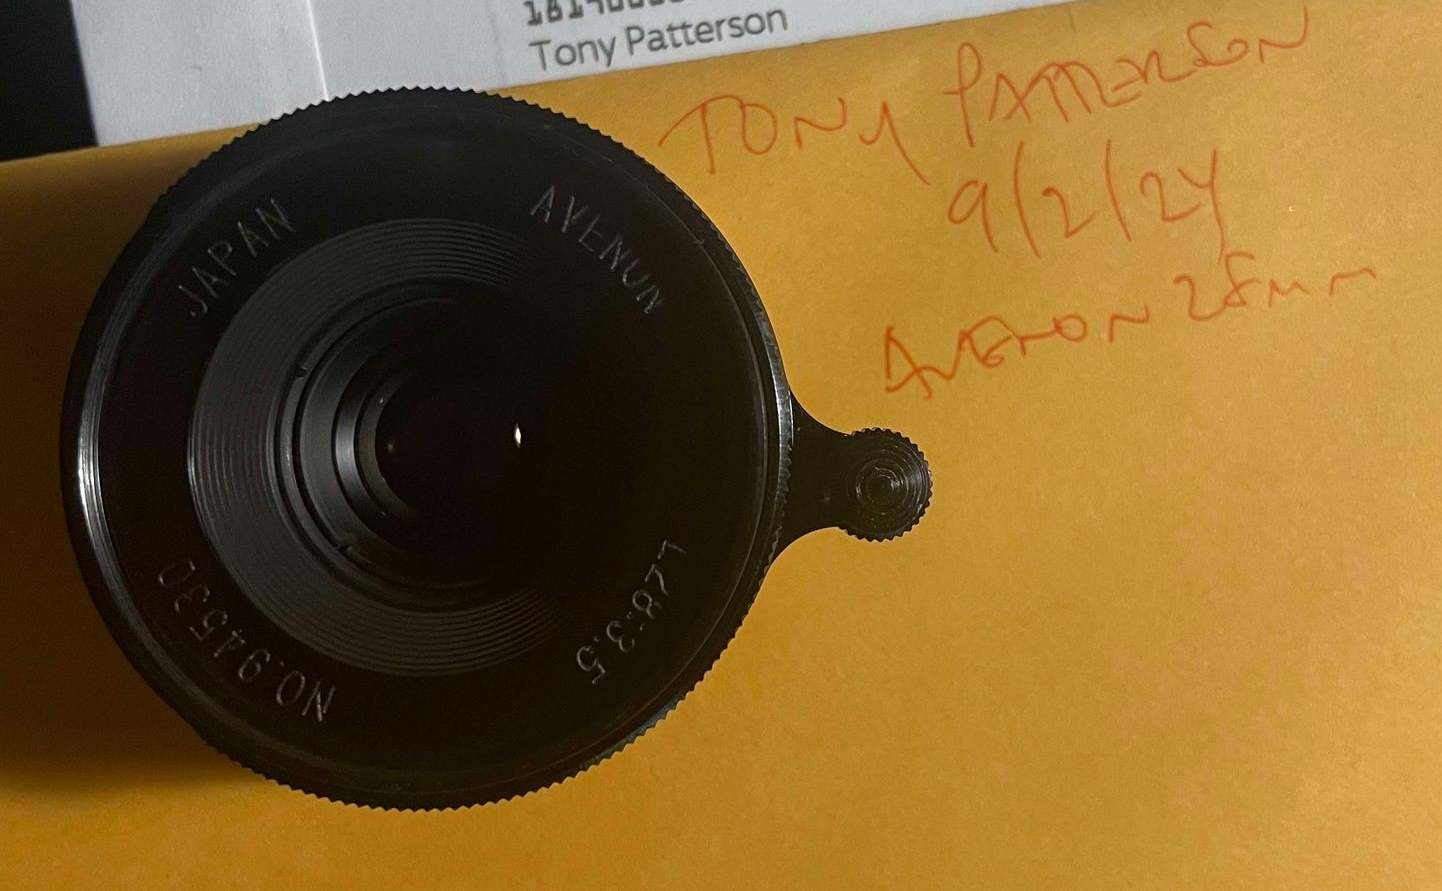 Tony Patterson
TONY PATTERSON
9/2/24
AVENON 28mm
JAPAN
AVENUN
L28:3.5
NO.94530